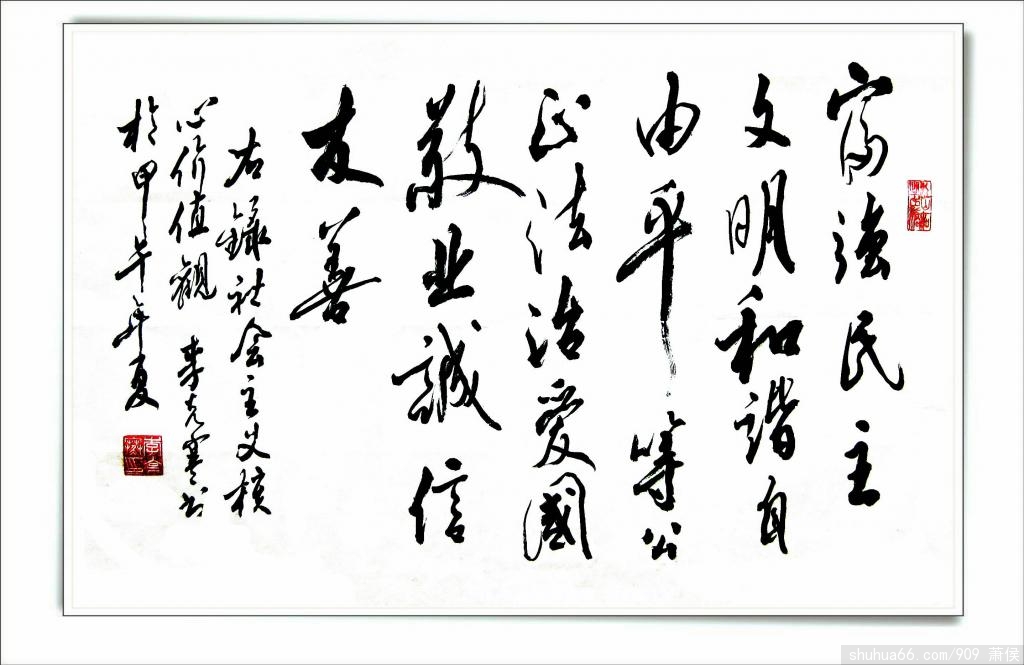 富強民主
文明和諧自
由平等公
正法治愛國
敬业誠信
友善
右録社会主义核
心价值觀 李克寒书
於甲午年夏
shuhua66.com/909 萧侯